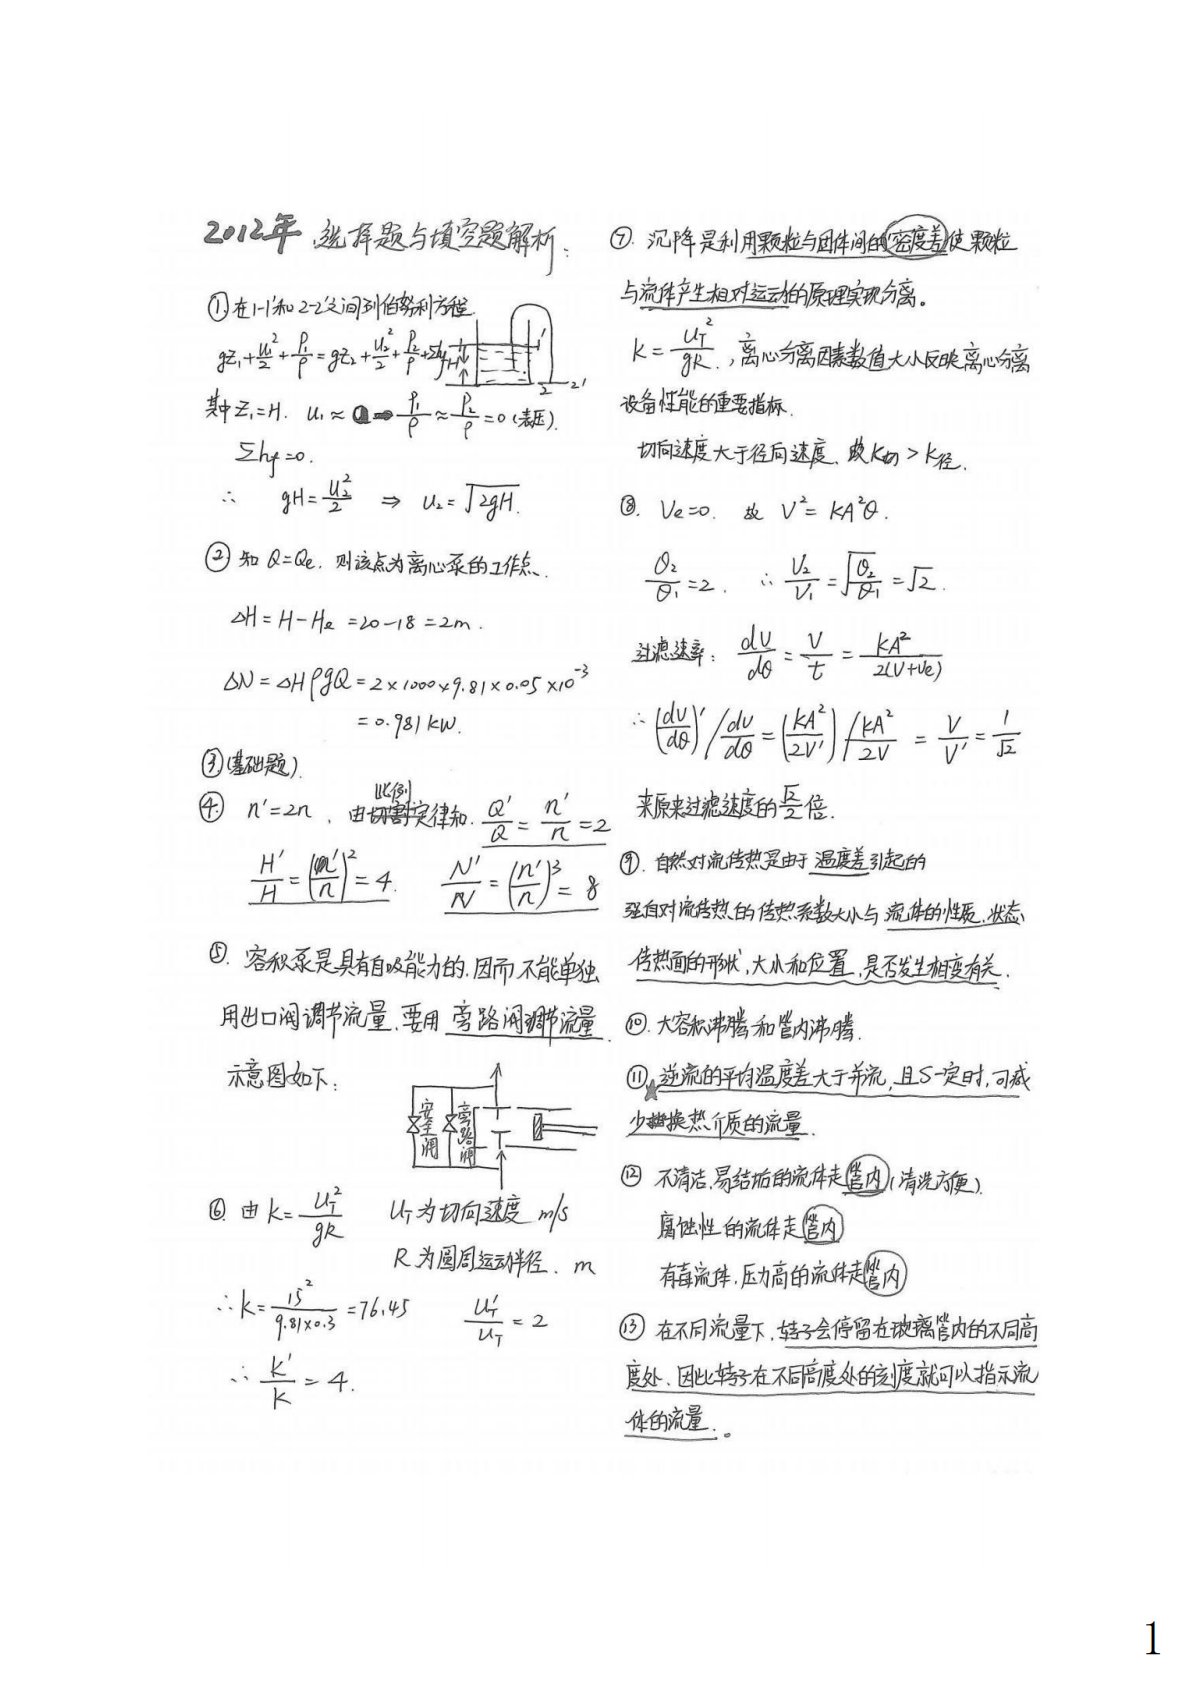 2012年 选择题与填空题解析:
①在1-1'和2-2'之间列伯努利方程
gz₁+u₁²/2+p₁/ρ=gz₂+u₂²/2+p₂/ρ+Σhf
H
1'
2
2'
其中z₁=H. u₁≈0 p₁/ρ≈p₂/ρ=0(表压).
Σhf=0.
∴ gH=u₂²/2 ⇒ u₂=√2gH.
② 知Q=Qe. 则该点为离心泵的工作点.
ΔH=H-He=20-18=2m.
ΔN=ΔHρgQ=2×1000×9.81×0.05×10⁻³
=0.981kW.
③(基础题).
④ n'=2n, 由比例定律知. Q'/Q=n'/n=2
H'/H=(n'/n)²=4. N'/N=(n'/n)³=8
⑤. 容积泵是具有自吸能力的.因而不能单独
用出口阀调节流量.要用 旁路阀调节流量.
示意图如下:
安全阀
旁路阀
⑥ 由k=u_T²/gR u_T为切向速度 m/s
R为圆周运动半径. m
∴k=15²/9.81×0.3=76.45 u_T'/u_T=2
∴k'/k=4.
⑦. 沉降是利用颗粒与固体间的密度差使颗粒
与流体产生相对运动的原理实现分离。
k=u_T²/gR.,离心分离因素数值大小反映离心分离
设备性能的重要指标.
切向速度大于径向速度. 故k切>k径.
⑧. Ve=0. 故 V²=KA²θ.
θ₂/θ₁=2. ∴V₂/V₁=√θ₂/θ₁=√2.
过滤速率: dV/dθ=V/t=KA²/2(V+Ve)
∴(dV/dθ)'/dV/dθ=(KA²/2V')/KA²/2V=V/V'=1/√2
来原来过滤速度的√2/2倍.
⑨. 自然对流传热是由于温度差引起的
强自对流传热的传热系数大小与流体的性质.状态
传热面的形状,大小和位置,是否发生相变有关.
⑩. 大容积沸腾和管内沸腾.
⑪★逆流的平均温度差大于并流,且S一定时,可减
少换热介质的流量.
⑫ 不清洁,易结垢的流体走管内(清洗方便).
腐蚀性的流体走管内
有毒流体,压力高的流体走管内
⑬ 在不同流量下,转子会停留在玻璃管内的不同高
度处.因此转子在不同高度处的刻度就可以指示流
体的流量.。
1